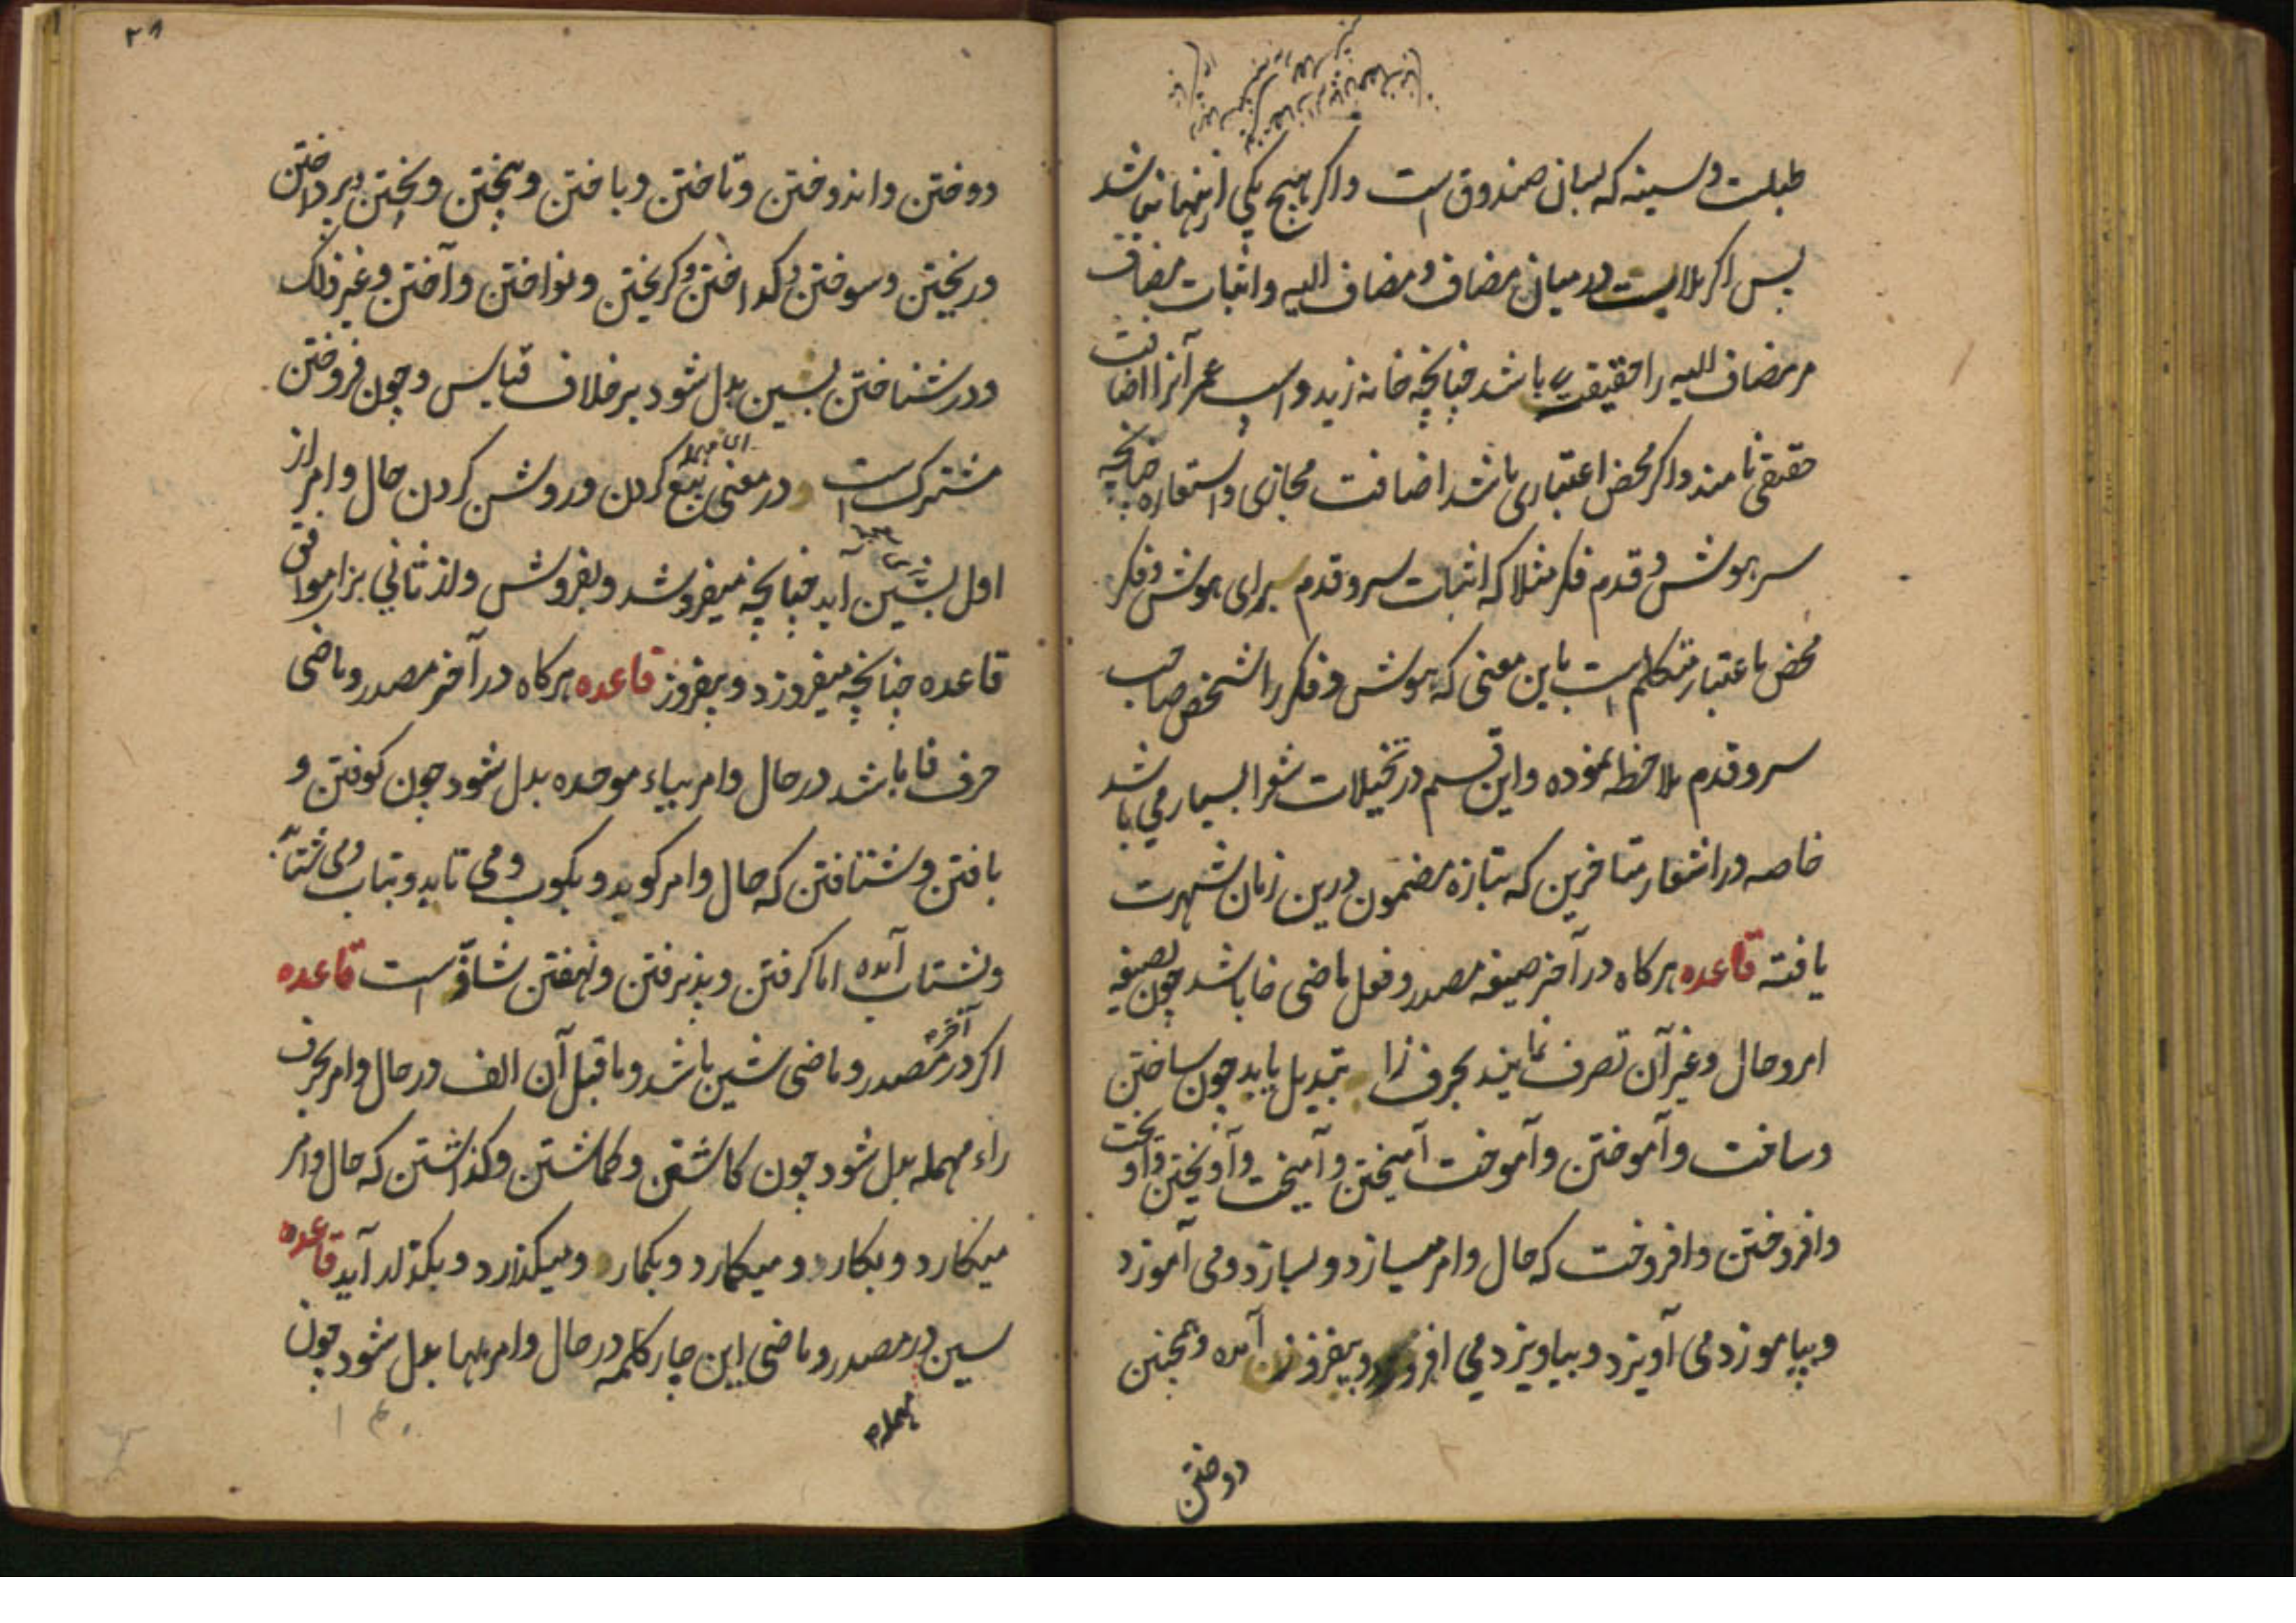 طبلت و سینه که بسان صندوق است و اگر هیچ یکی ازینها نباشد
پس اگر ملابست درمیان مضاف و مضاف الیه و اثبات مضاف
مر مضاف الیه را حقیقی باشد چنانچه خانه زید و اسپ عمر آنرا اضافت
حقیقی نامند و اگر محض اعتباری باشد اضافت مجازی و استعاره چنانچه
سر هوش و قدم فکر مثلا که اثبات سر و قدم برای هوش و فکر
محض باعتبار متکلم است باین معنی که هوش و فکر را شخص صاحب
سر و قدم ملاحظه نموده و این قسم در تخیلات شعرا بسیار می باشد
خاصه در اشعار متاخرین که بتازه مضمون درین زمان شهرت
یافته قاعده هرکاه در آخر صیغه مصدر و فعل ماضی خا باشد چون بصیغه
امر و حال و غیر آن تصرف نمایند بحرف زا تبدیل یابد چون ساختن
و ساخت و آموختن و آموخت آمیختن و آمیخت و آویختن و آویخت
و افروختن و افروخت که حال و امر میسازد و بسازد و می آموزد
و بیاموزد می آویزد و بیاویزد می افروزد و بیفروزد آمده و همچنین
دوختن
۲۸
دوختن و اندوختن و تاختن و باختن و پختن و بختن و پرداختن
و ریختن و سوختن و کداختن و کریختن و نواختن و آختن و غیر ذلک
و در شناختن بسین بدل شود بر خلاف قیاس و چون فروختن
مشترک است در معنی بیع کردن و روشن کردن حال و امر از
اول بشین آید چنانچه میفروشد و بفروش و از ثانی بزا موافق
قاعده چنانچه میفروزد و بیفروز قاعده هرکاه در آخر مصدر و ماضی
حرف فا باشد در حال و امر بباء موحده بدل شود چون کوفتن و
یافتن و شتافتن که حال و امر کوبد و بکوب و می تابد و بتاب و می شتابد
و بشتاب آمده اما کرفتن و پذیرفتن و نهفتن شاذ است قاعده
اگر در آخر مصدر و ماضی شین باشد و ماقبل آن الف در حال و امر بحرف
راء مهمله بدل شود چون کاشتن و کماشتن و کذاشتن که حال و امر
میکارد و بکار و میکمارد و بکمار و میکذارد و بکذار آید قاعده
سین در مصدر و ماضی این چار کلمه در حال و امر بها بدل شود چون
مهمله